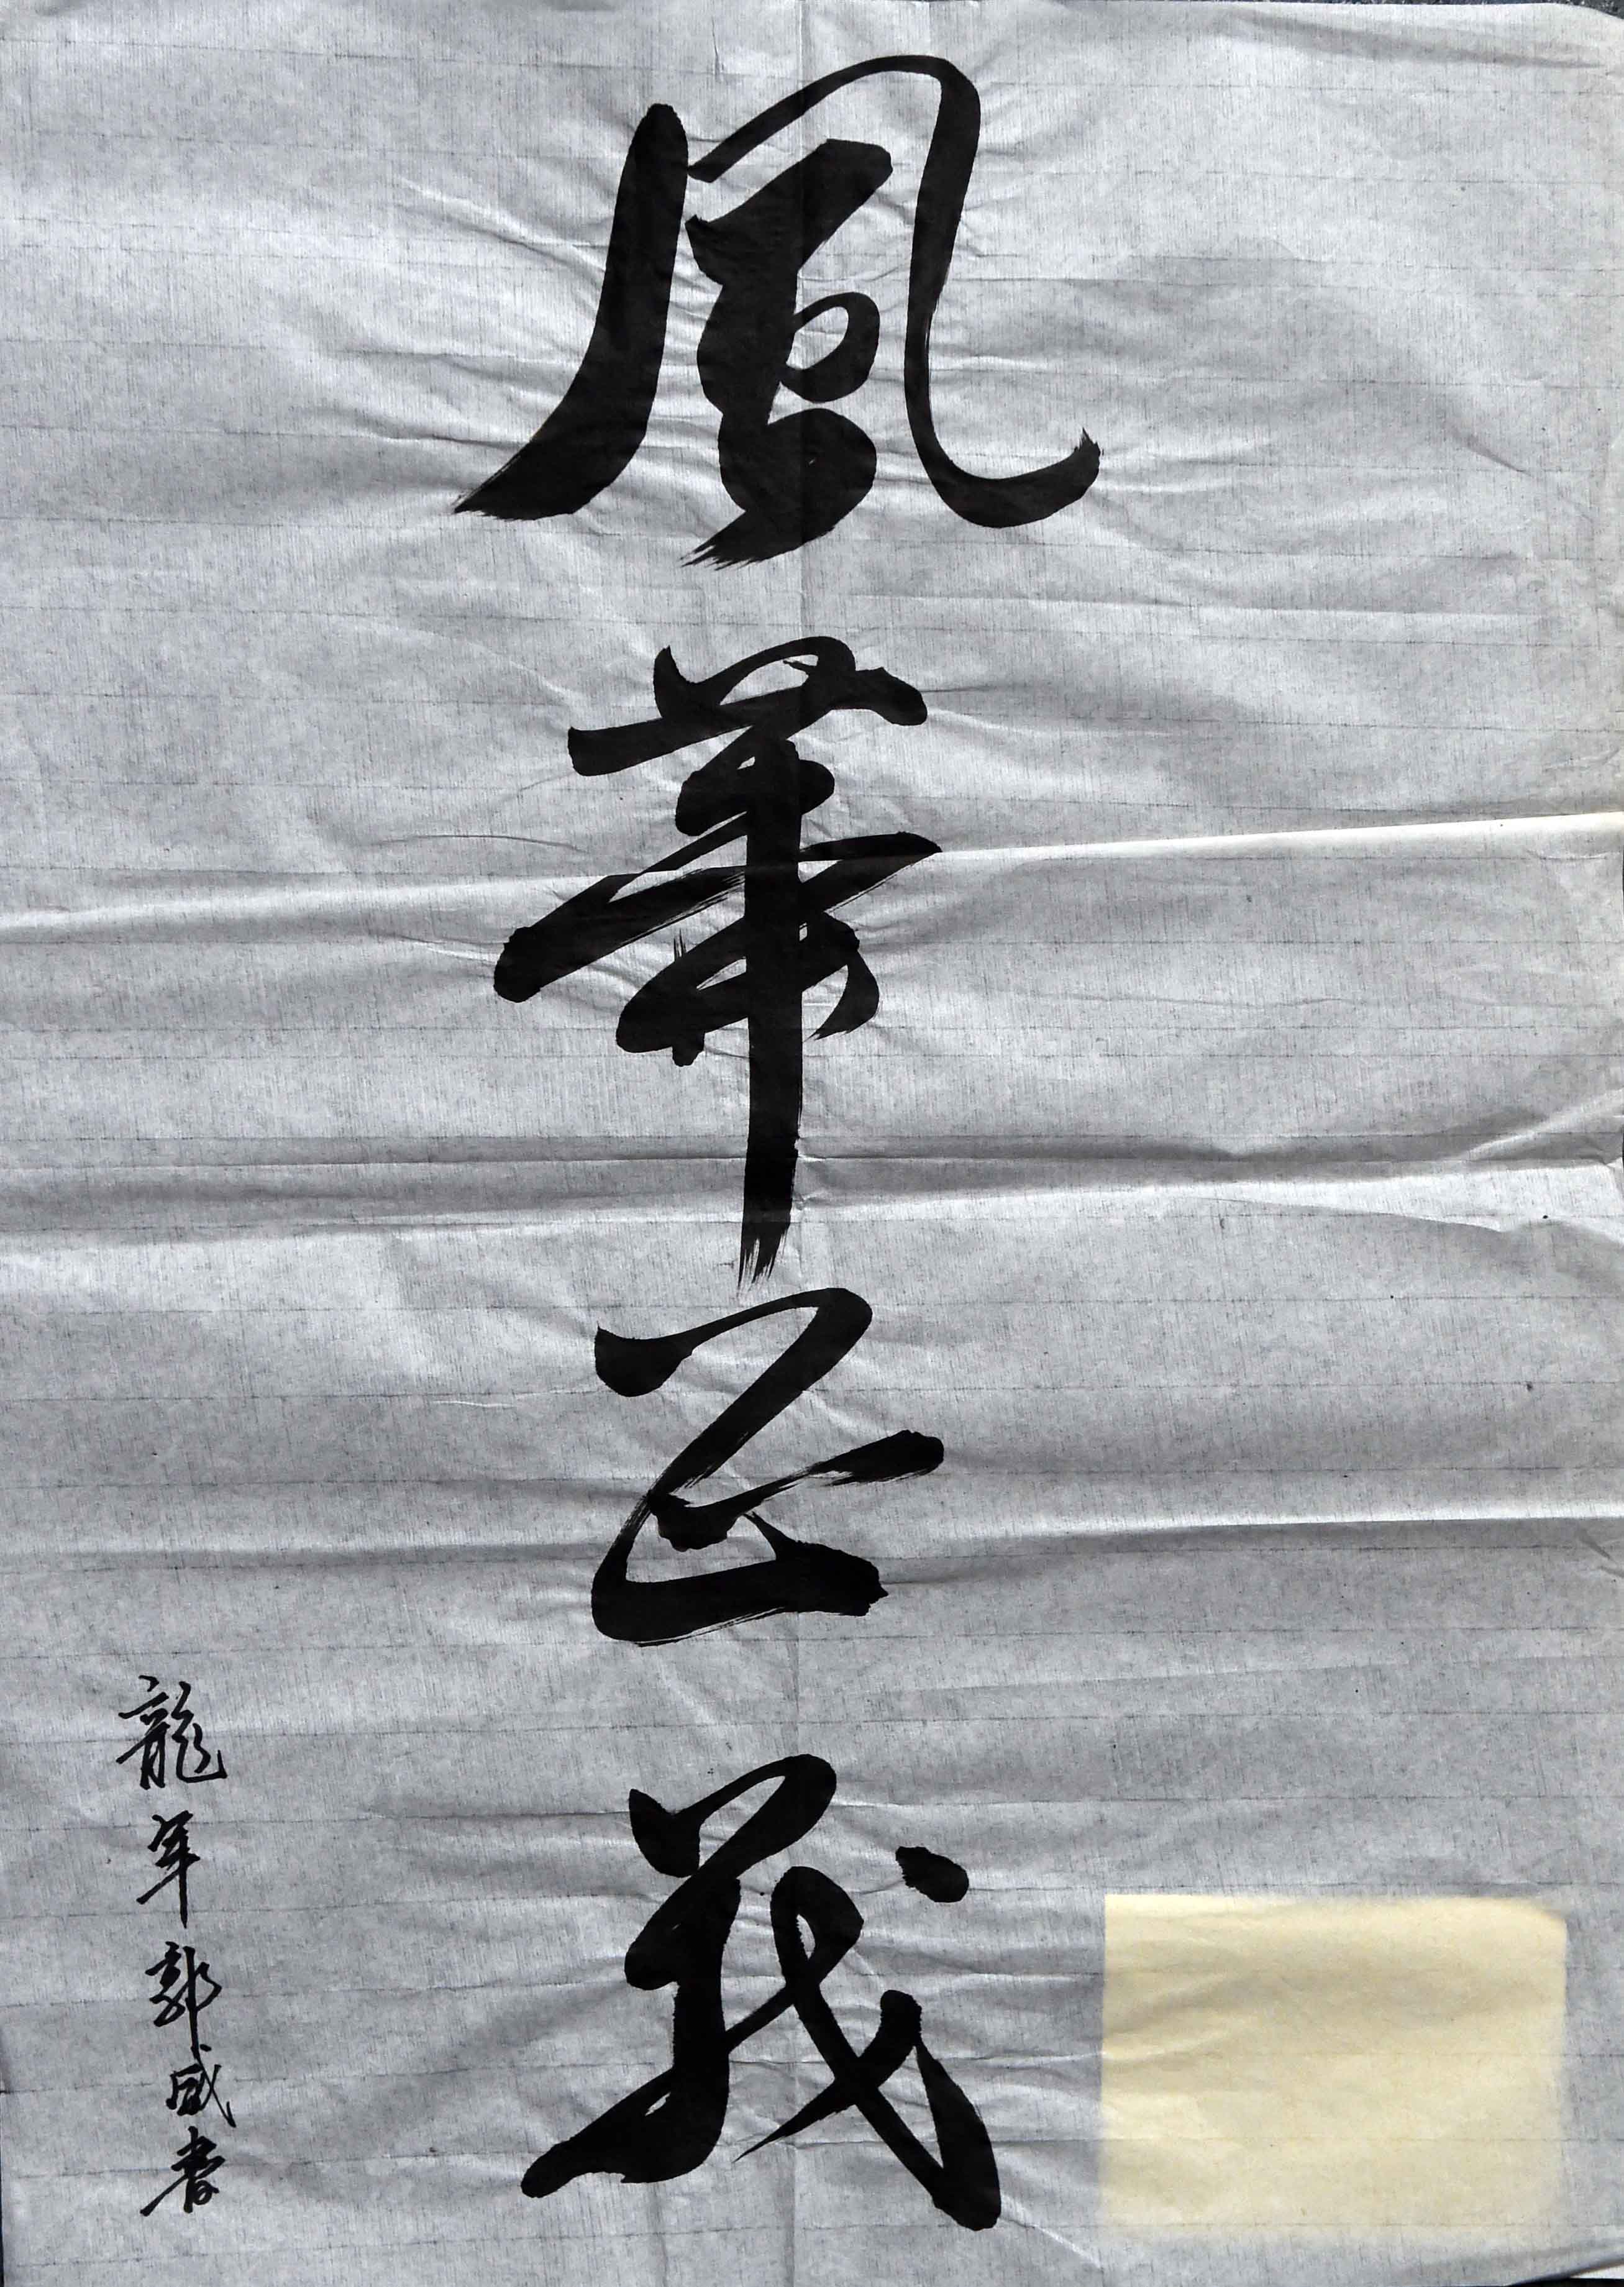 風華正茂
龍年郭威書